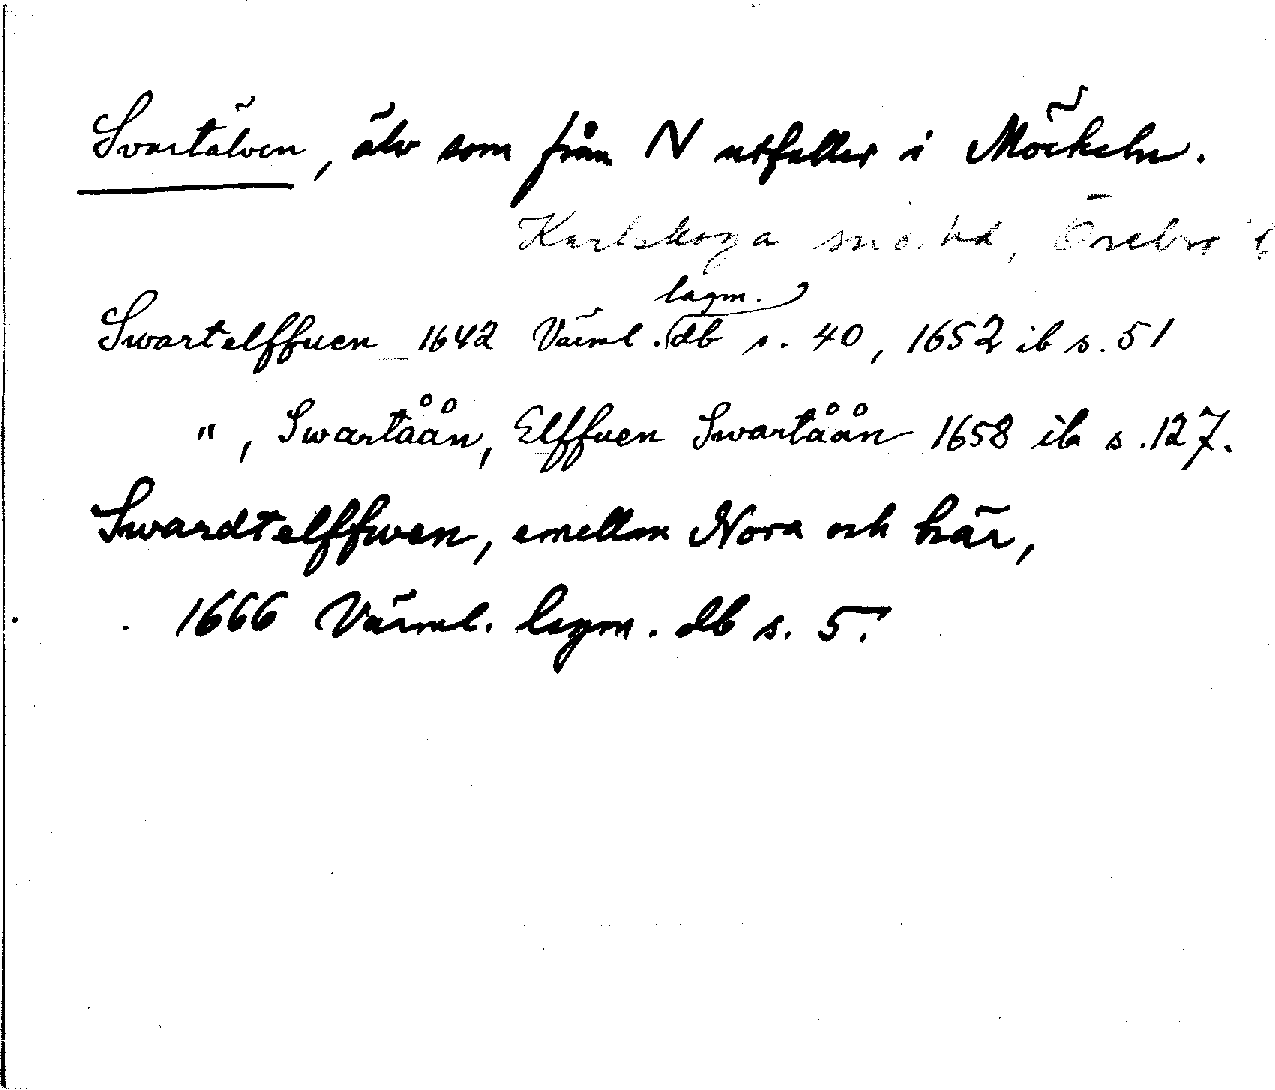 Svartälven, älv som från N utfaller i Möckeln.
Karlskoga sn o. hd, Örebro l
Swartelffuen 1642 Värml. lagm. db s. 40, 1652 ib s. 51
" , Swartåån, Elffuen Swartåån 1658 ib s. 127.
Swardtelffwen, emellan Nora och här,
1666 Värml. lagm. db s. 5.